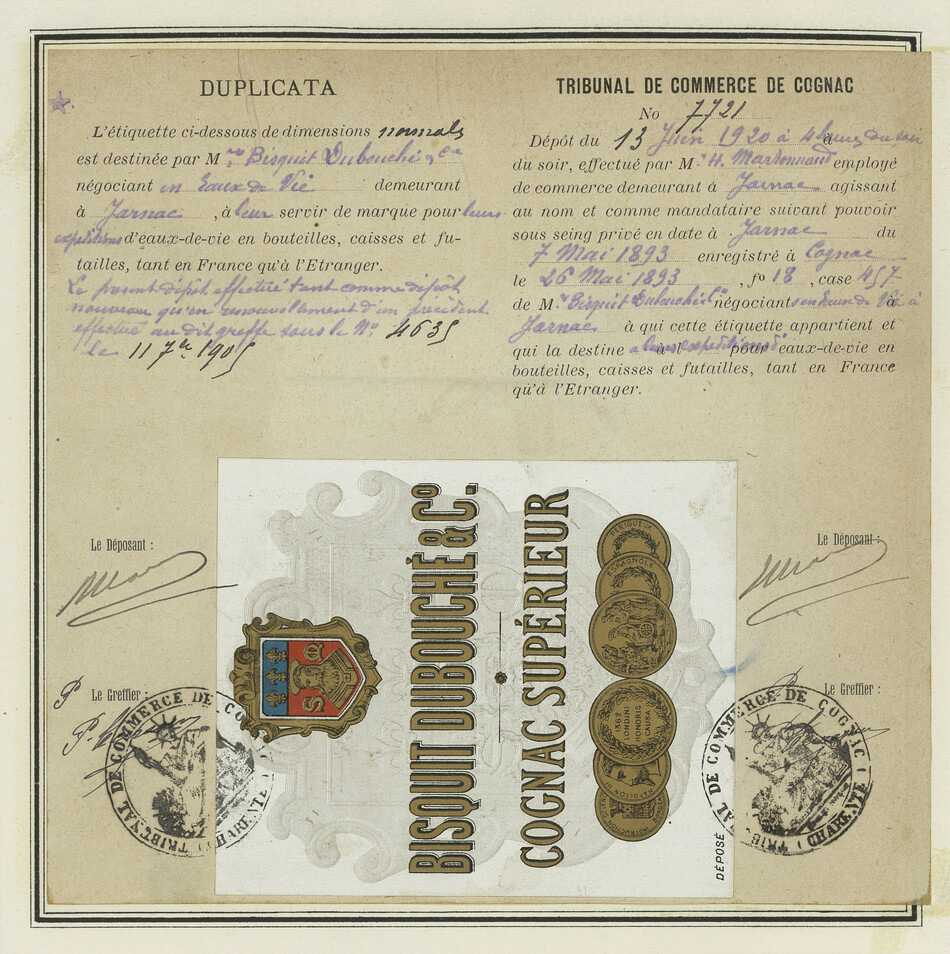 DUPLICATA
L'étiquette ci-dessous de dimensions normales
est destinée par M rs Bisquit Dubouché & Cie
négociant en Eaux de Vie demeurant
à Jarnac, à leur servir de marque pour leurs
expéditions d'eaux-de-vie en bouteilles, caisses et fu-
tailles, tant en France qu'à l'Etranger.
Le présent dépôt effectué tant comme dépôt
nouveau qu'en renouvellement d'un précédent
effectué au dit greffe sous le No. 4635
le 11 7bre 1905
TRIBUNAL DE COMMERCE DE COGNAC
No 7721
Dépôt du 13 Juin 1920 à 4 heures du soir
du soir, effectué par M. H. employé
de commerce demeurant à Jarnac agissant
au nom et comme mandataire suivant pouvoir
sous seing privé en date à Jarnac du
7 Mai 1893 enregistré à Cognac
le 26 Mai 1893, fo 18, case 457
de M rs Bisquit Dubouché négociants en Eaux de Vie à
Jarnac à qui cette étiquette appartient et
qui la destine à leurs expéditions d'eaux-de-vie en
bouteilles, caisses et futailles, tant en France
qu'à l'Etranger.
Le Déposant :
Le Greffier :
P.
TRIBUNAL DE COMMERCE DE COGNAC
CHARENTE
BISQUIT DUBOUCHÉ & Co.
COGNAC SUPÉRIEUR
PÉRIGUEUX
ESPAGNOLE
1862
LONDINI
HONORIS
CAUSA
NAPOLEON III
INSTRUCTION
DÉPOSÉ
Le Déposant :
Le Greffier :
TRIBUNAL DE COMMERCE DE COGNAC
CHARENTE